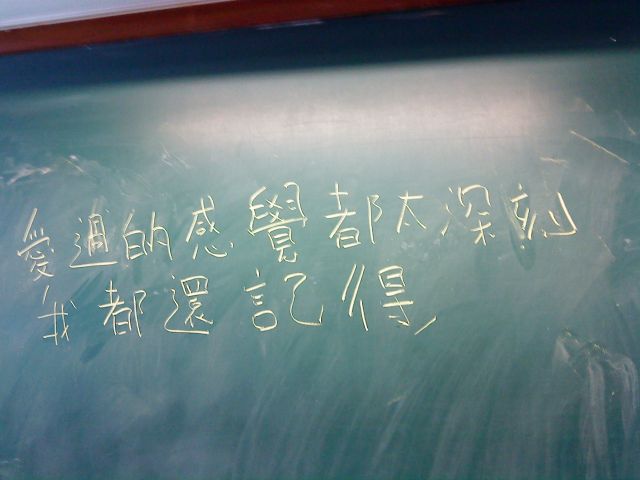 愛過的感覺都太深刻
我都還記得